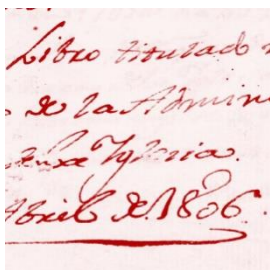 Libro titulado
de la Admin
Yglesia.
Abril de 1806.